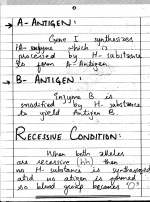 → A-ANTIGEN:
Gene I synthesizes
A-enzyme which is
processed by H-substance
to form A-Antigen.
→ B-ANTIGEN:
Enzyme B is
modified by H-substance
to yield Antigen B.
RECESSIVE CONDITION:
When both alleles
are recessive (hh) then
no H-substance is synthesized
and no antigen is formed
so blood group becomes 'O'